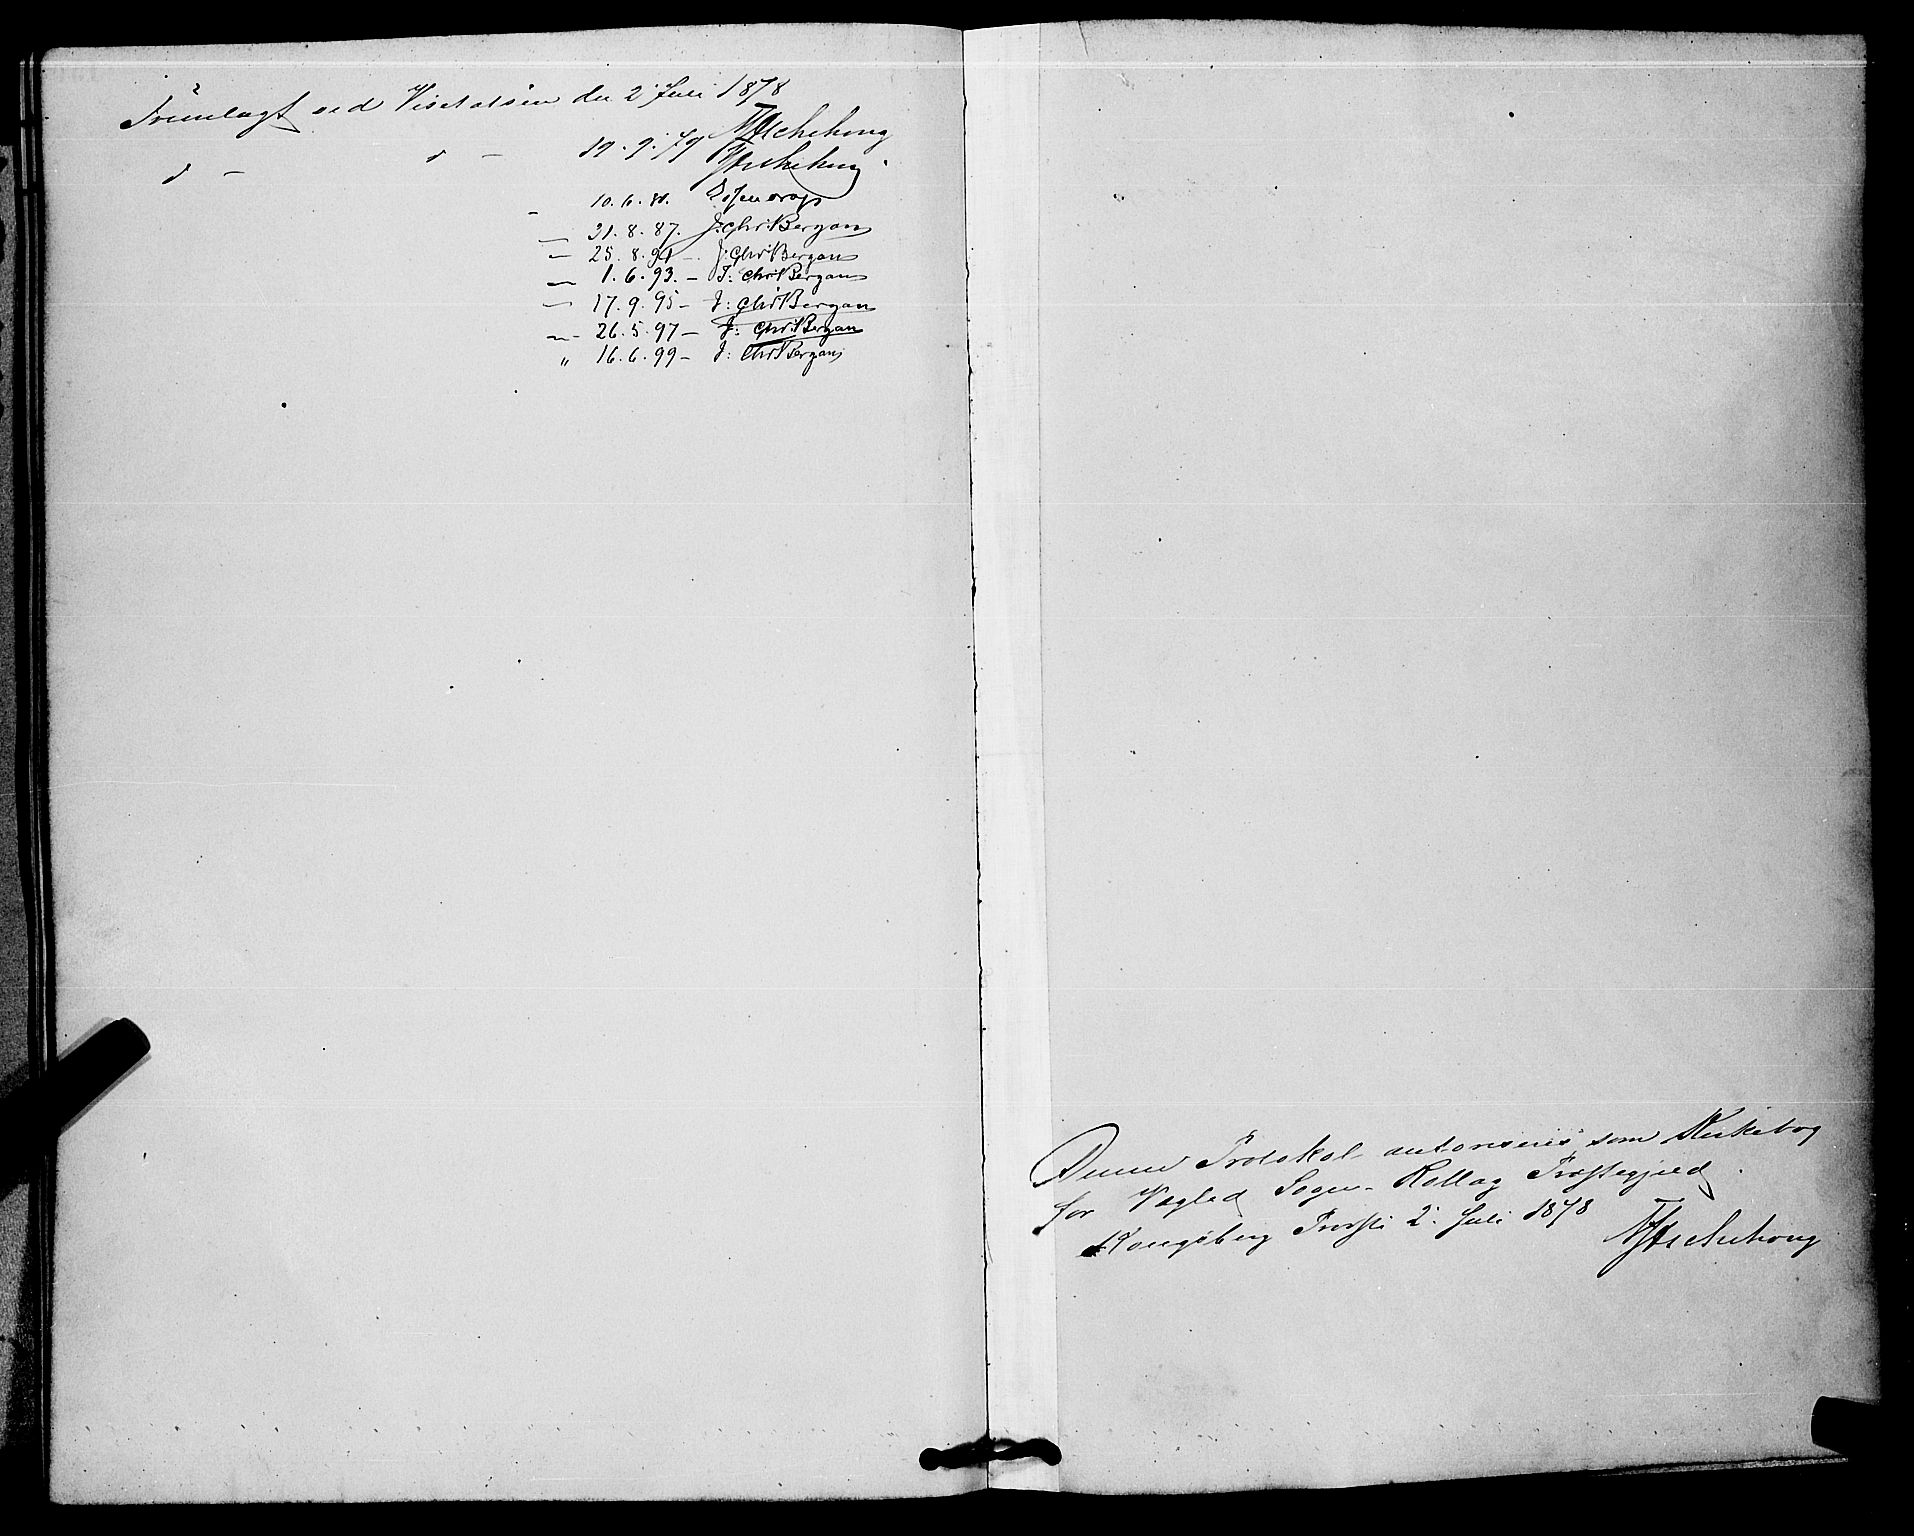 Fremlagt ved Visitatsen den 2 Juli 1878
d - d - 19.9.79
10.6.80.
31.8.87. J: Chr: Bergan
25.8.91 - J: Chr Bergan
1.6.93. - J: Chr Bergan
17.9.95 - J: Chr Bergan
26.5.97 - J: Chr: Bergan
„ 16.6.99 - J: Chr Bergan
Denne Protokol autoriseres som Kirkebog
for Vægled Sogn - Rollag Præstegjeld
Kongsberg Provsti 2. Juli 1878